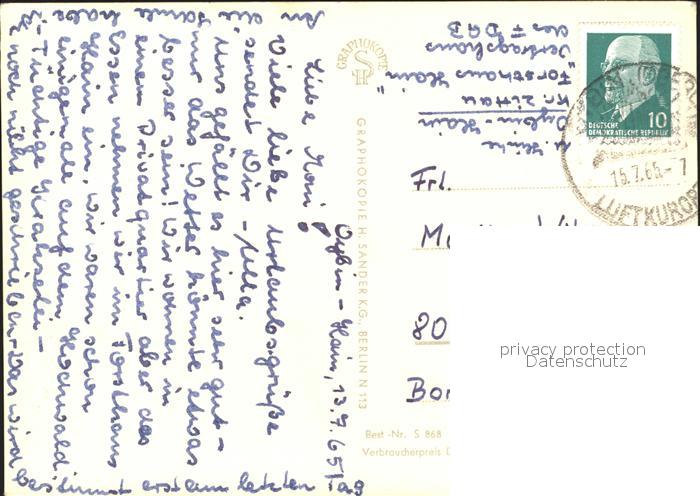 Oybin-Hain, 13.7.65
Liebe Moni!
Viele liebe Urlaubsgrüße
sendet Dir -
Uns gefällt es hier sehr gut -
nur das Wetter könnte etwas
besser sein! Wir wohnen in
einem Privatquartier aber das
Essen nehmen wir im Forsthaus
Hain ein. Wir waren schon
einigemale auf dem Hochwald
-Tüchtige
noch nicht geschrieben. Das wird
bestimmt erst am letzten Tag
Oybin-Hain
Kr. Zittau
"Forsthaus Hain"
Vertragshaus
des FDGB
GRAPHOKOPIE
H S
GRAPHOKOPIE H. SANDER K.G., BERLIN N 113
DEUTSCHE
DEMOKRATISCHE REPUBLIK
10
15.7.65-7
LUFTKUROR
Frl.
M
80
Bo
privacy protection
Datenschutz
Best.-Nr. S 868
Verbraucherpreis